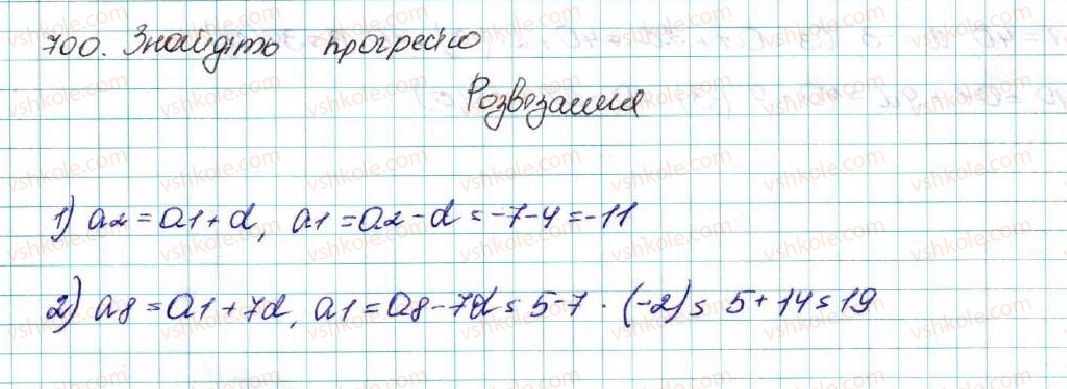 700. Знайдіть прогресію
Розвезання
1) a2 = a1 + d, a1 = a2 - d = -7 - 4 = -11
2) a8 = a1 + 7d, a1 = a8 - 7d = 5 - 7 · (-2) = 5 + 14 = 19